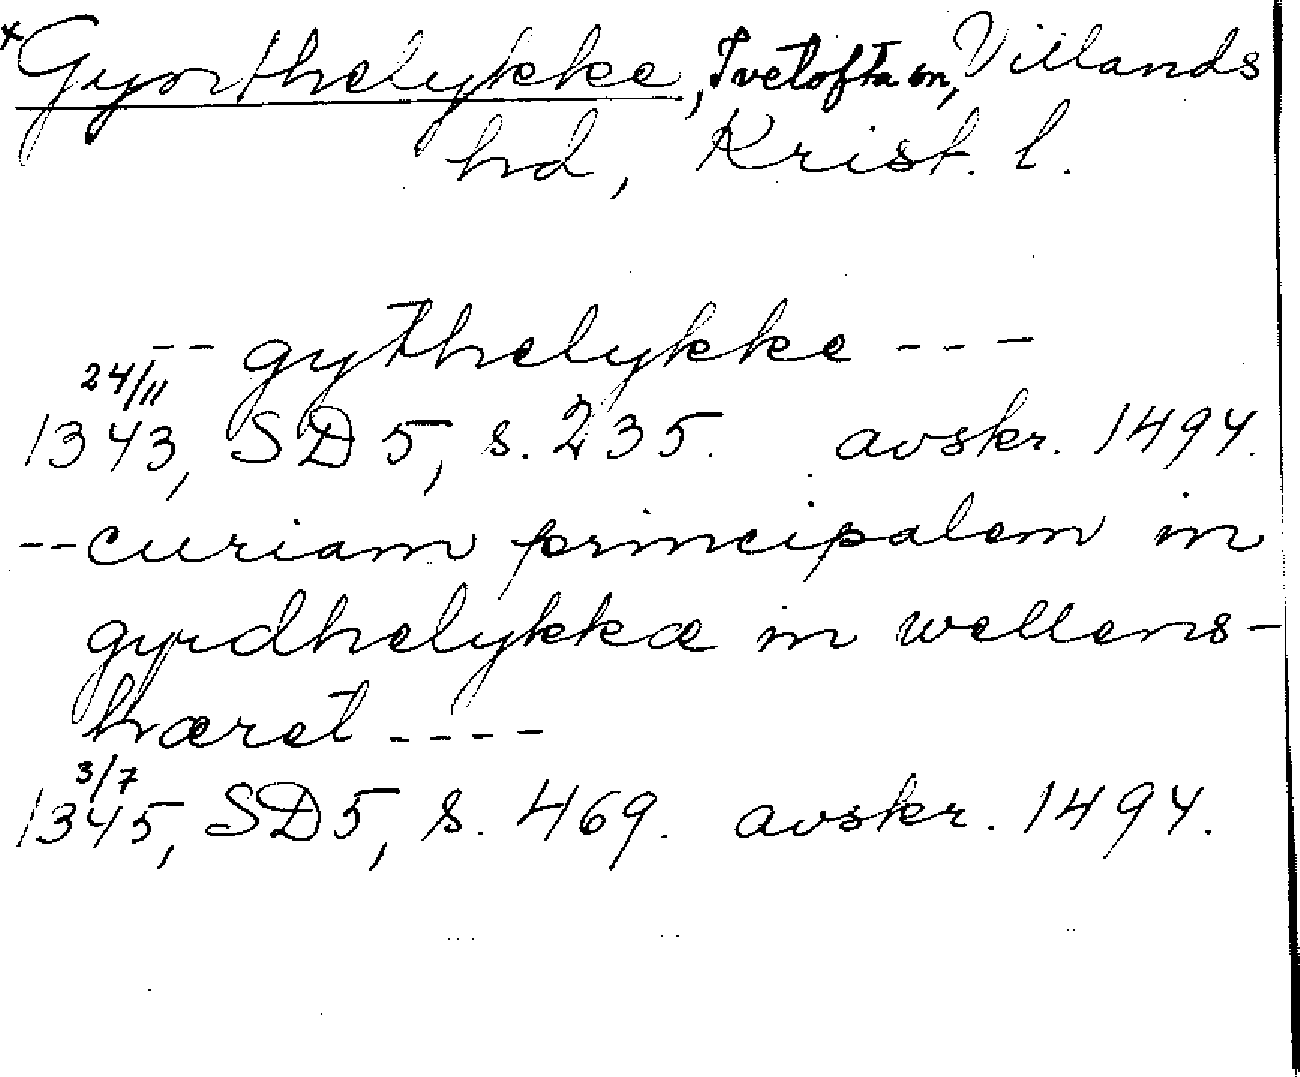 *Gyørthelykke, Ivetofta sn, Villands
hd, Krist. l.
-- gythelykke ---
24/11
1343, SD 5, s. 235. avskr. 1494.
--curiam principalem in
gyrdhelykkæ in wellens-
hæret ----
3/7
1345, SD 5, s. 469. avskr. 1494.